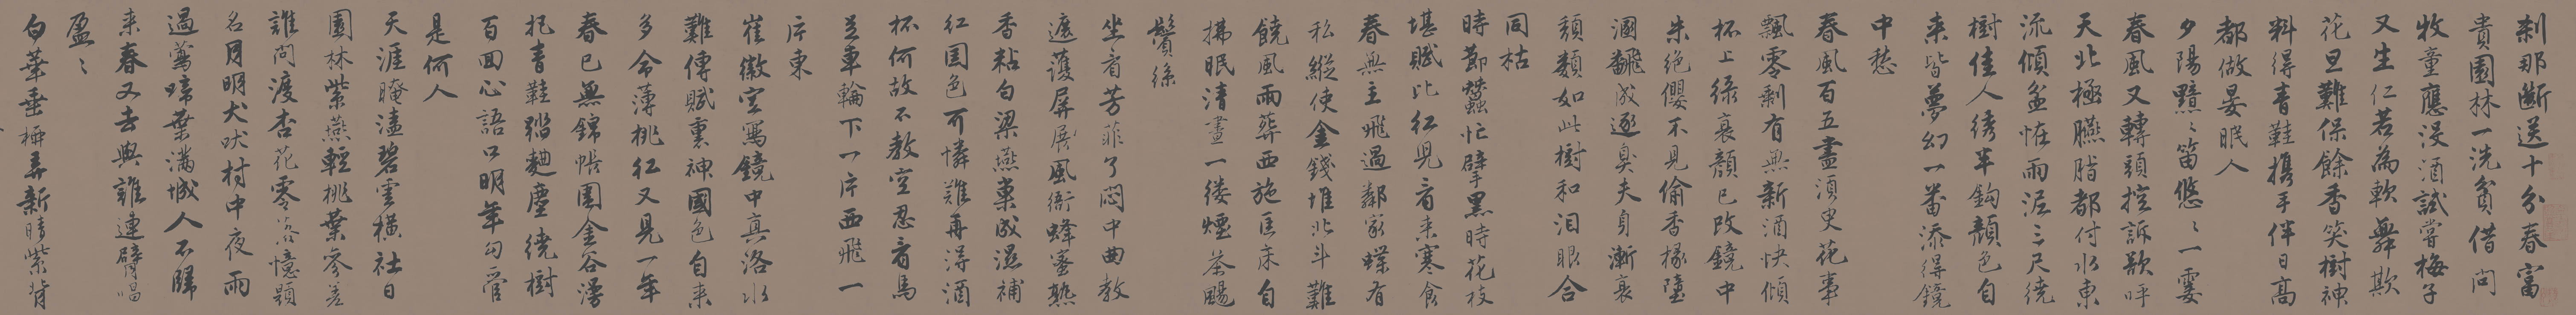 刹那斷送十分春富
貴園林一洗貧借問
牧童應沒酒試嘗梅子
又生仁若為軟舞欺
花旦難保餘香笑樹神
料得青鞋攜手伴日高
都做晏眠人
夕陽黯〻笛悠〻一霎
春風又轉頭控訴欲呼
天北極臙脂都付水東
流傾盆怪雨泥三尺繞
樹佳人綉半鈎顏色自
来皆夢幻一番添得鏡
中愁
春風百五盡須臾花事
飄零剩有無新酒快傾
杯上綠衰顏已改鏡中
朱絕纓不見偷香掾墮
溷翻成逐臭夫身漸衰
頹類如此樹和泪眼合
同枯
時節蠶忙擘黑時花枝
堪賦比紅兒看来寒食
春無主飛過鄰家蝶有
私縱使金錢堆北斗難
饒風雨葬西施匡床自
拂眠清晝一縷煙茶颺
鬢絲
坐看芳菲了悶中曲教
遮護屏展風衙蜂蜜熟
香粘白梁燕巢成濕補
紅國色可憐難再得酒
杯何故不教空忍看馬
足車輪下一片西飛一
片東
崔徽空寫鏡中真洛水
難傳賦裏神國色自来
多命薄桃紅又見一年
春已無錦帳圍金谷漫
把青鞋踏麯塵繞樹
百回心語口明年勾管
是何人
天涯晻溘碧雲橫社日
園林紫燕輕桃葉參差
誰問渡杏花零落憶題
名月明犬吠村中夜雨
過鶯啼葉滿城人不歸
来春又去與誰連臂唱
盈〻
白華垂柳弄新晴紫背